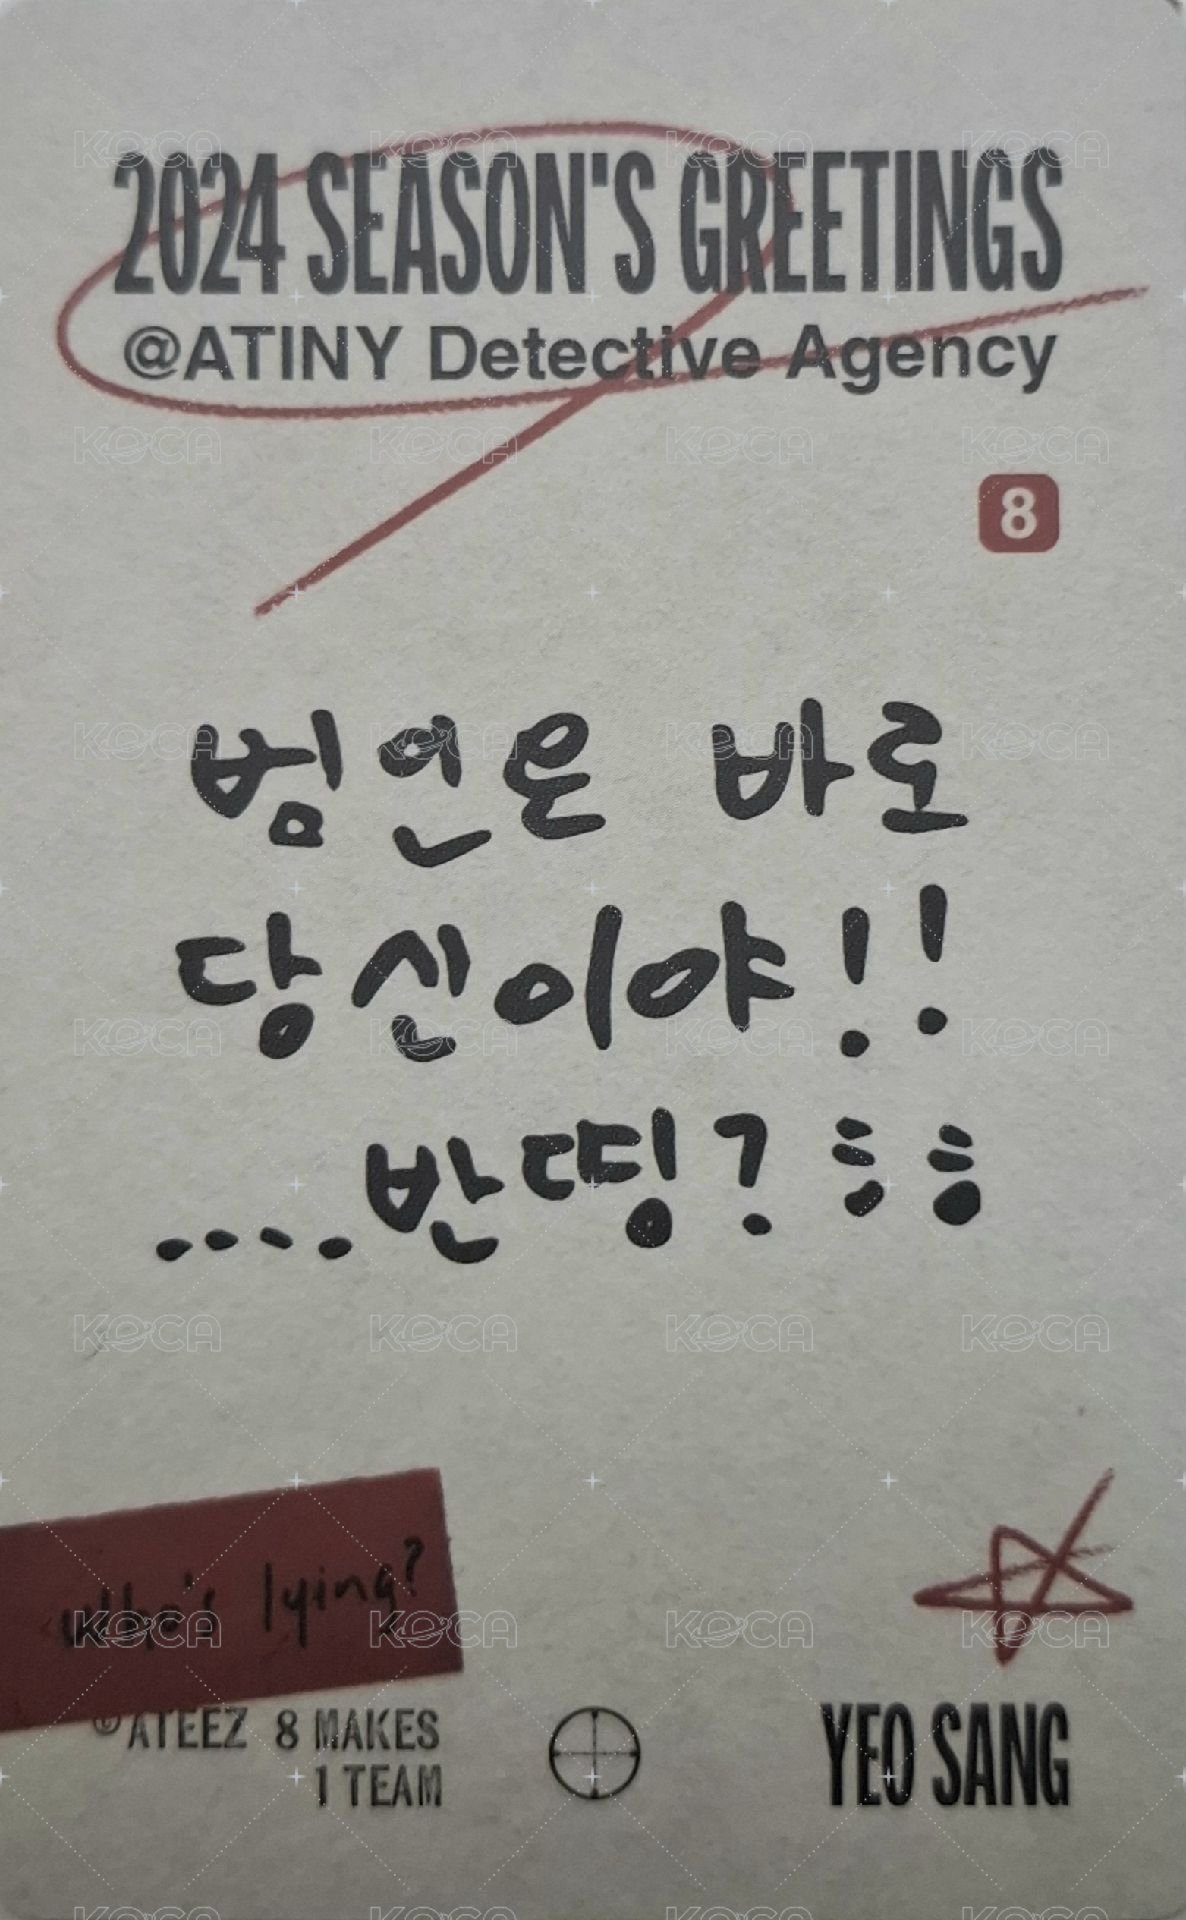 2024 SEASON'S GREETINGS
@ATINY Detective Agency
8
범인은 바로
당신이야!!
....반띵?
who's lying?
© ATEEZ 8 MAKES
1 TEAM
YEO SANG
KOCA